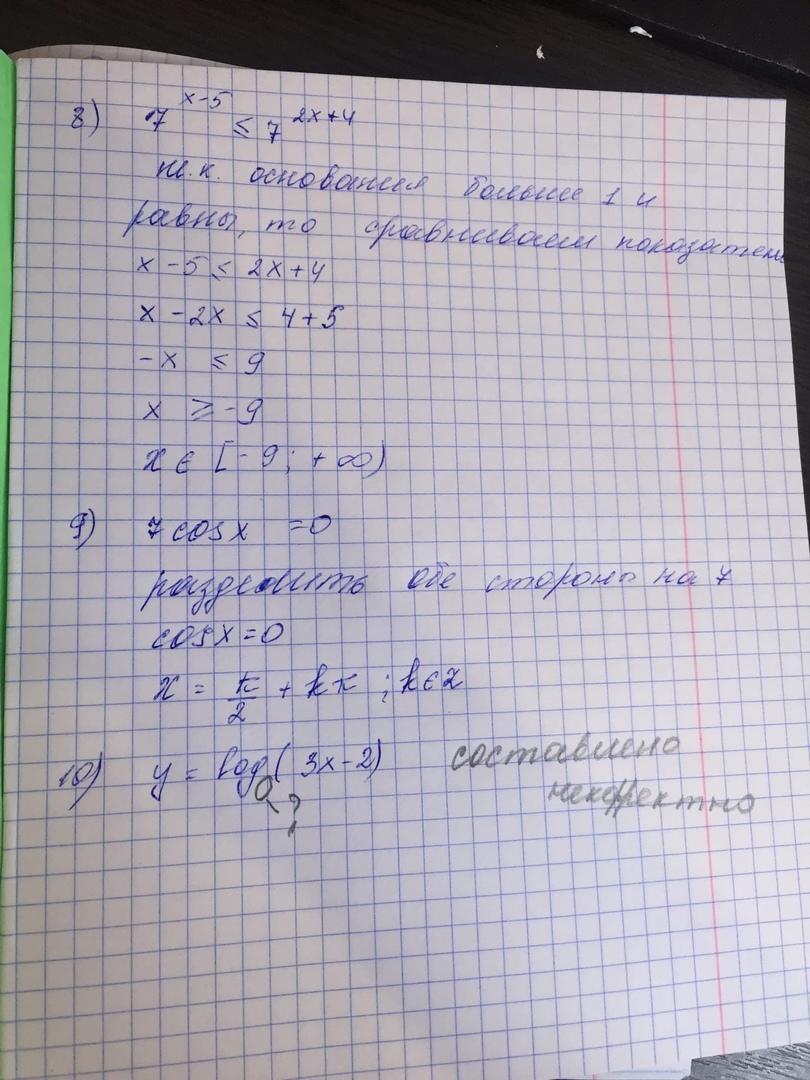 8) 7^{x-5} ≤ 7^{2x+4}
т.к. основания больше 1 и
равны, то сравниваем показатели
x - 5 ≤ 2x + 4
x - 2x ≤ 4 + 5
-x ≤ 9
x ≥ -9
x ∈ [-9; +∞)
9) 7 cos x = 0
разделить обе стороны на 7
cos x = 0
x = π/2 + kπ ; k ∈ z
10) y = log ( 3x - 2) составлено
? некорректно